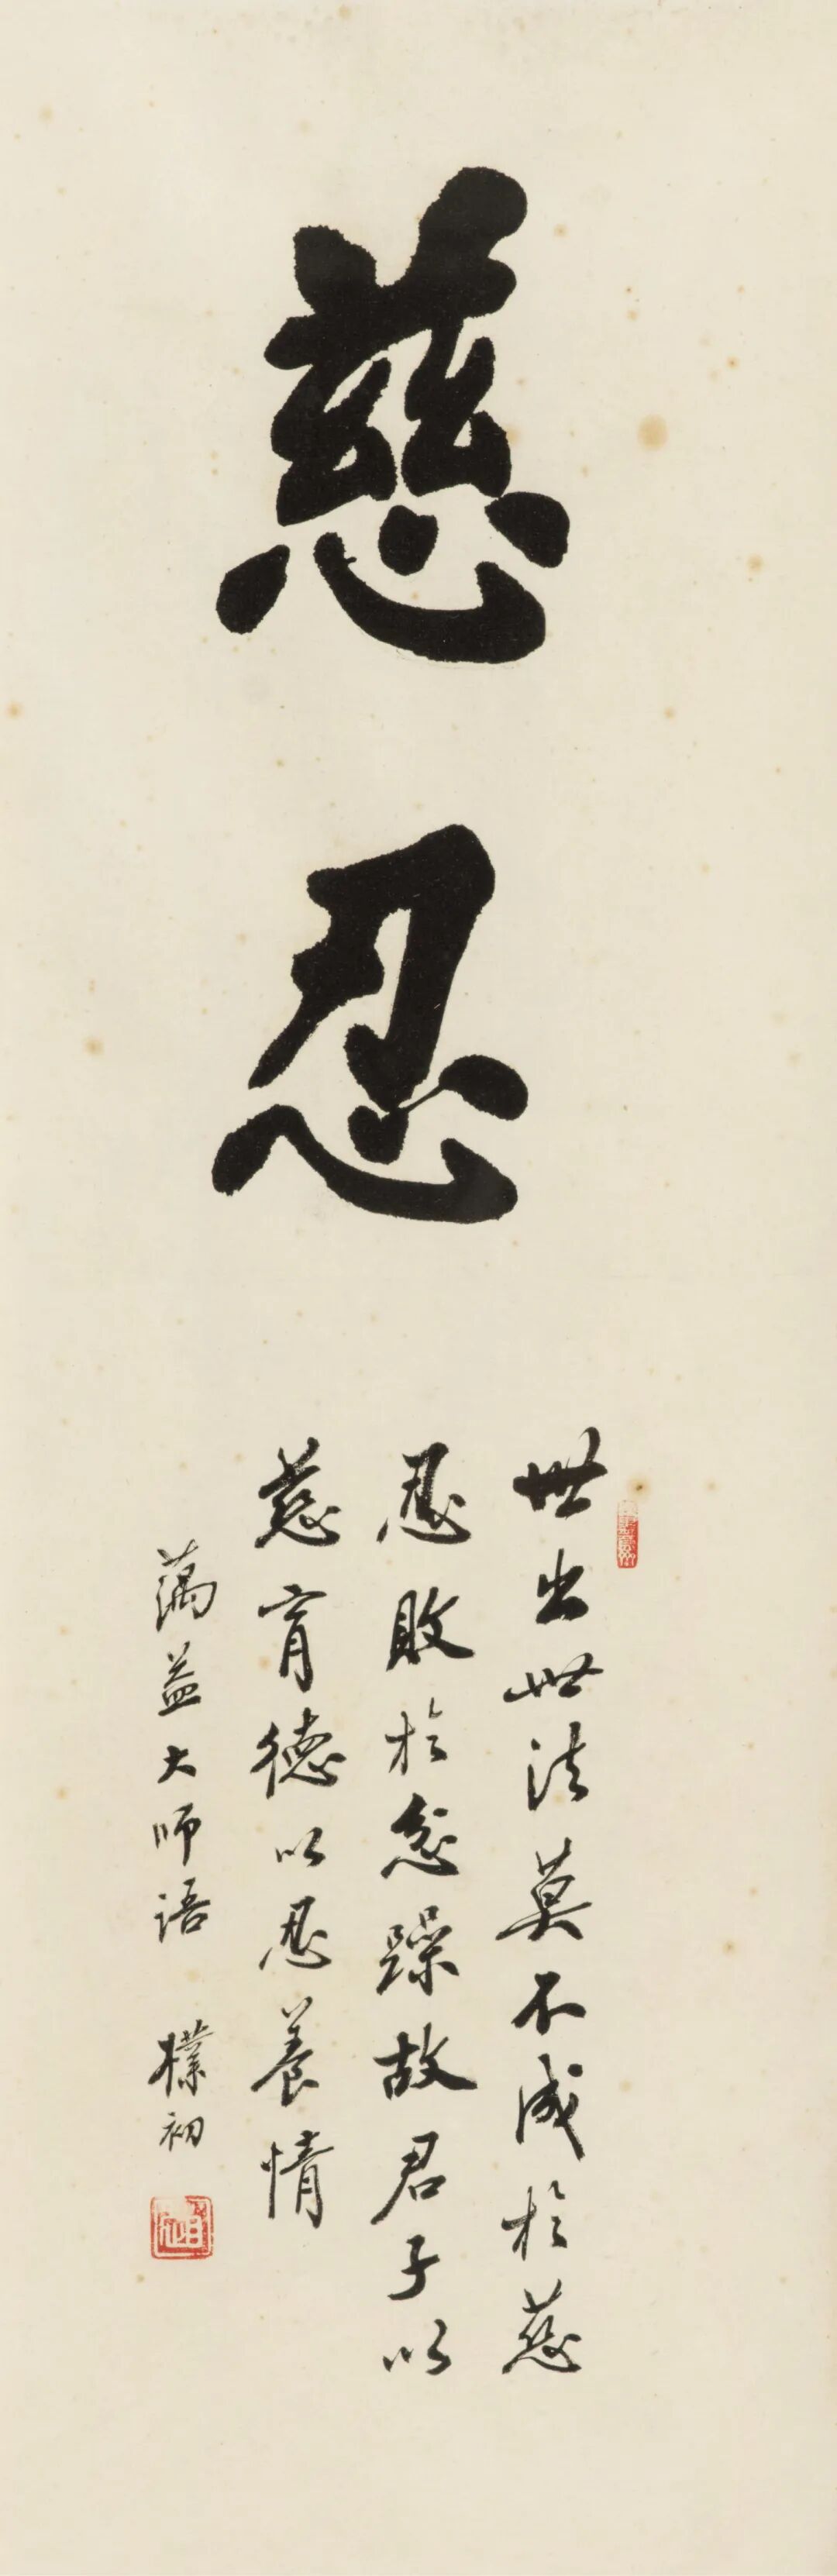 慈忍
世出世法莫不成於慈
忍敗於忿躁故君子以
慈育德以忍養情
蕅益大师语 樸初